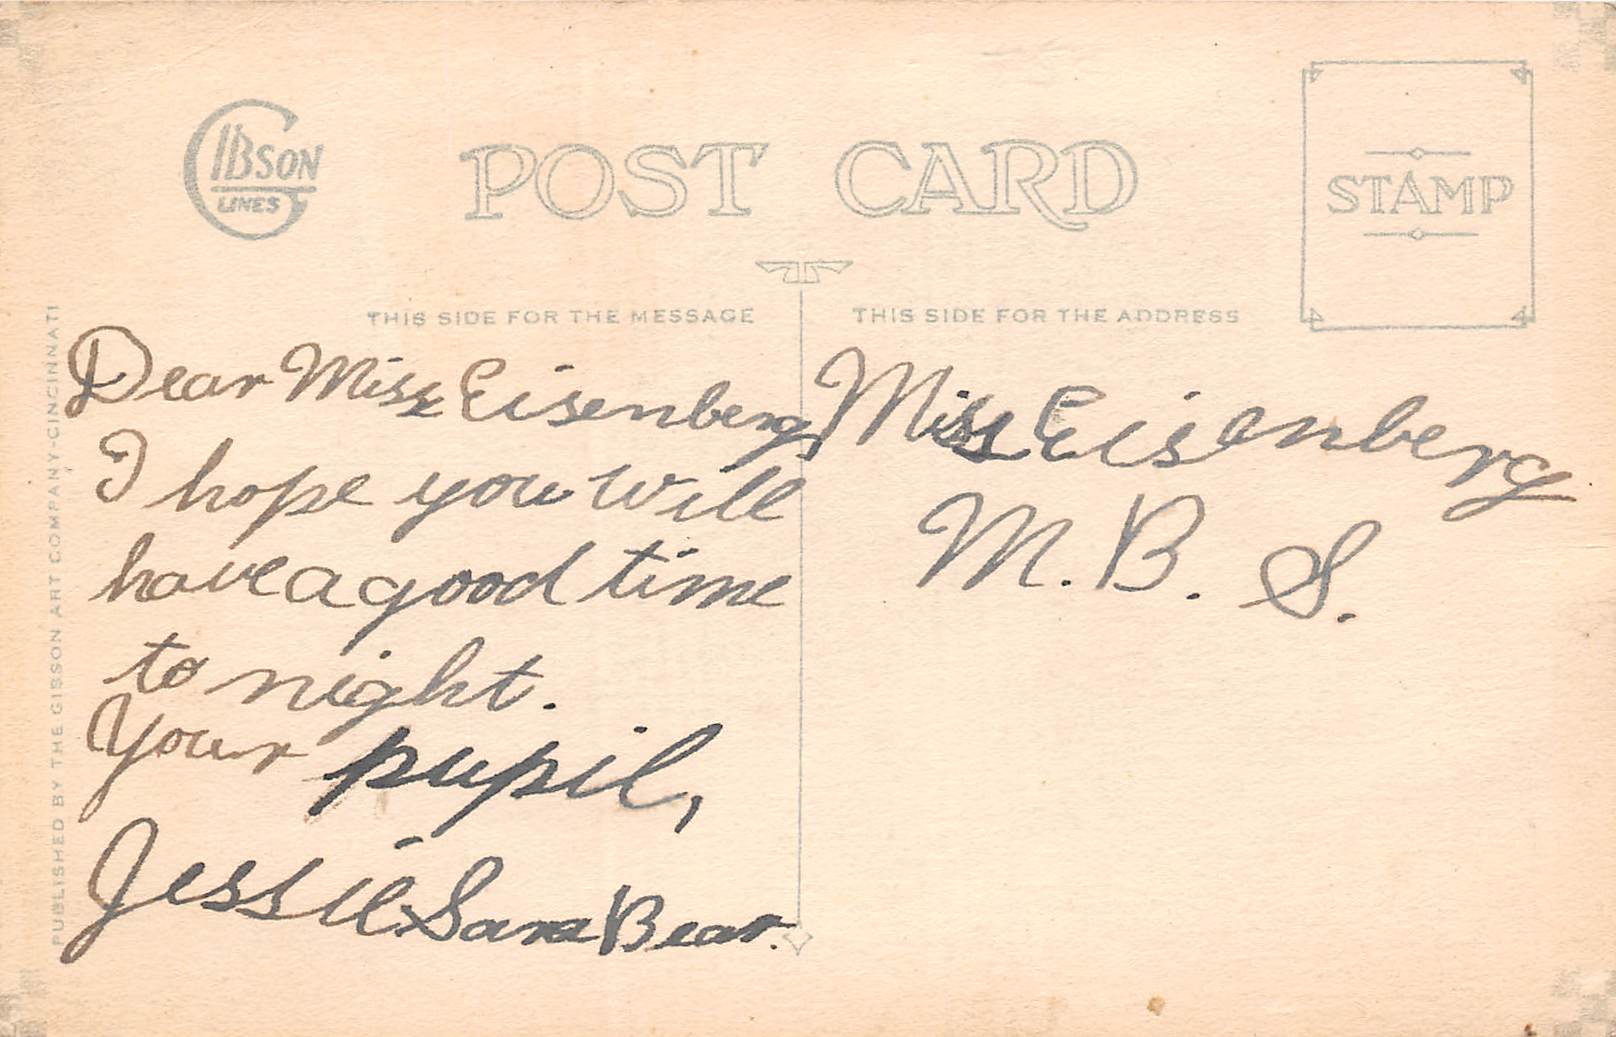 GIBSON
LINES
POST CARD
STAMP
THIS SIDE FOR THE MESSAGE
THIS SIDE FOR THE ADDRESS
PUBLISHED BY THE GIBSON ART COMPANY-CINCINNATI
Dear Miss Eisenberg,
I hope you will
have a good time
to night.
Your pupil,
Jessie Sara Bear.
Miss Eisenberg
M. B. S.